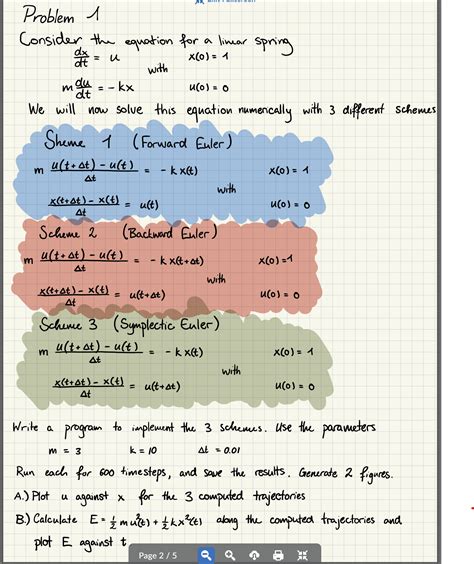 Problem 1
Consider the equation for a linear spring
dx/dt = u with x(0) = 1
m du/dt = -kx u(0) = 0
We will now solve this equation numerically with 3 different schemes
Sheme 1 (Forward Euler)
m (u(t+Δt) - u(t))/Δt = -k x(t) with x(0) = 1
(x(t+Δt) - x(t))/Δt = u(t) u(0) = 0
Scheme 2 (Backward Euler)
m (u(t+Δt) - u(t))/Δt = -k x(t+Δt) with x(0) = 1
(x(t+Δt) - x(t))/Δt = u(t+Δt) u(0) = 0
Scheme 3 (Symplectic Euler)
m (u(t+Δt) - u(t))/Δt = -k x(t) with x(0) = 1
(x(t+Δt) - x(t))/Δt = u(t+Δt) u(0) = 0
Write a program to implement the 3 schemes. Use the parameters
m = 3 k = 10 Δt = 0.01
Run each for 600 timesteps, and save the results. Generate 2 figures.
A.) Plot u against x for the 3 computed trajectories
B.) Calculate E = ½ m u²(t) + ½ k x²(t) along the computed trajectories and
plot E against t
Page 2 / 5